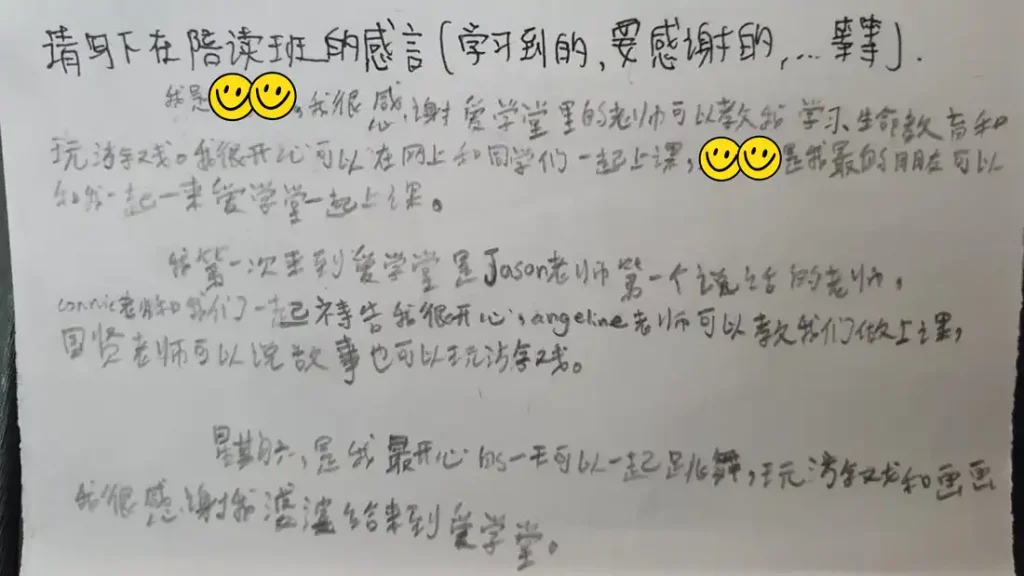 请写下在陪读班的感言(学习到的,要感谢的,...等等).
我是 ,我很感谢爱学堂里的老师可以教我学习生命教育和
玩游戏。我很开心可以在网上和同学们一起上课, 是我最的朋友可以
和我一起一来爱学堂一起上课。
我第一次来到爱学堂是Jason老师第一个说话的老师,
connie老师和我们一起祷告我很开心,angeline老师可以教我们做上课,
国贤老师可以说故事也可以玩游戏。
星期六,是我最开心的一天可以一起跳舞,玩游戏和画画
我很感谢我婆婆给来到爱学堂。